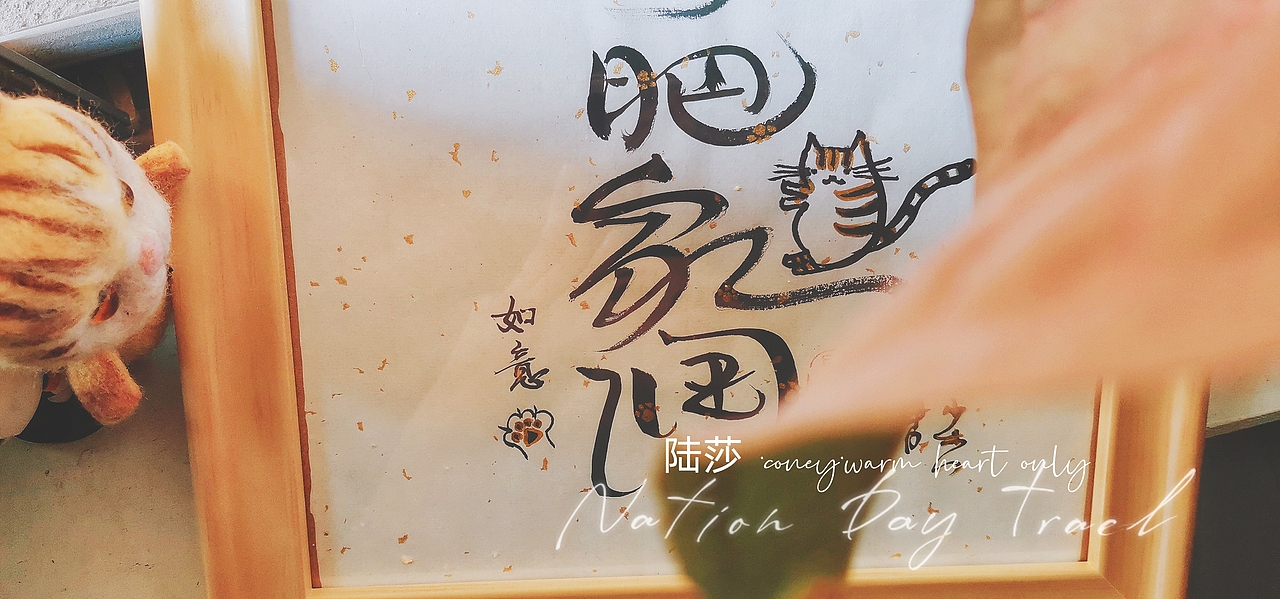 肥
家
如意
陆莎 ·coney·warm heart only
Nation Day Tracl